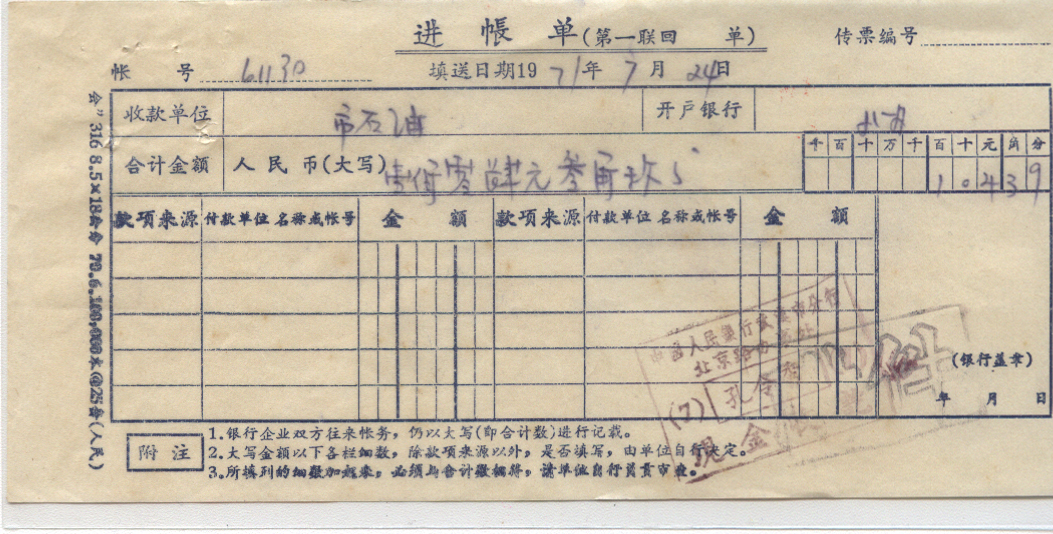 进帐单(第一联回 单)
传票编号
帐 号 61130
填送日期1971年7月24日
收款单位 市石油
开户银行
合计金额 人民币(大写) 壹佰零肆元叁角玖分
千百十万千百十元角分
10439
款项来源 付款单位名称或帐号 金 额 款项来源 付款单位名称或帐号 金 额
中国人民银行 市分行
北京路办事处
(7) 孔
现金收
(银行盖章)
年 月 日
附注
1.银行企业双方往来帐务,仍以大写(即合计数)进行记载。
2.大写金额以下各栏细数,除款项来源以外,是否填写,由单位自行决定。
3.所填列的细数加起来,必须与合计数相符,请单位自行负责审查。
会"316 8.5×18公分 70.6.100,000本@25份(人民)